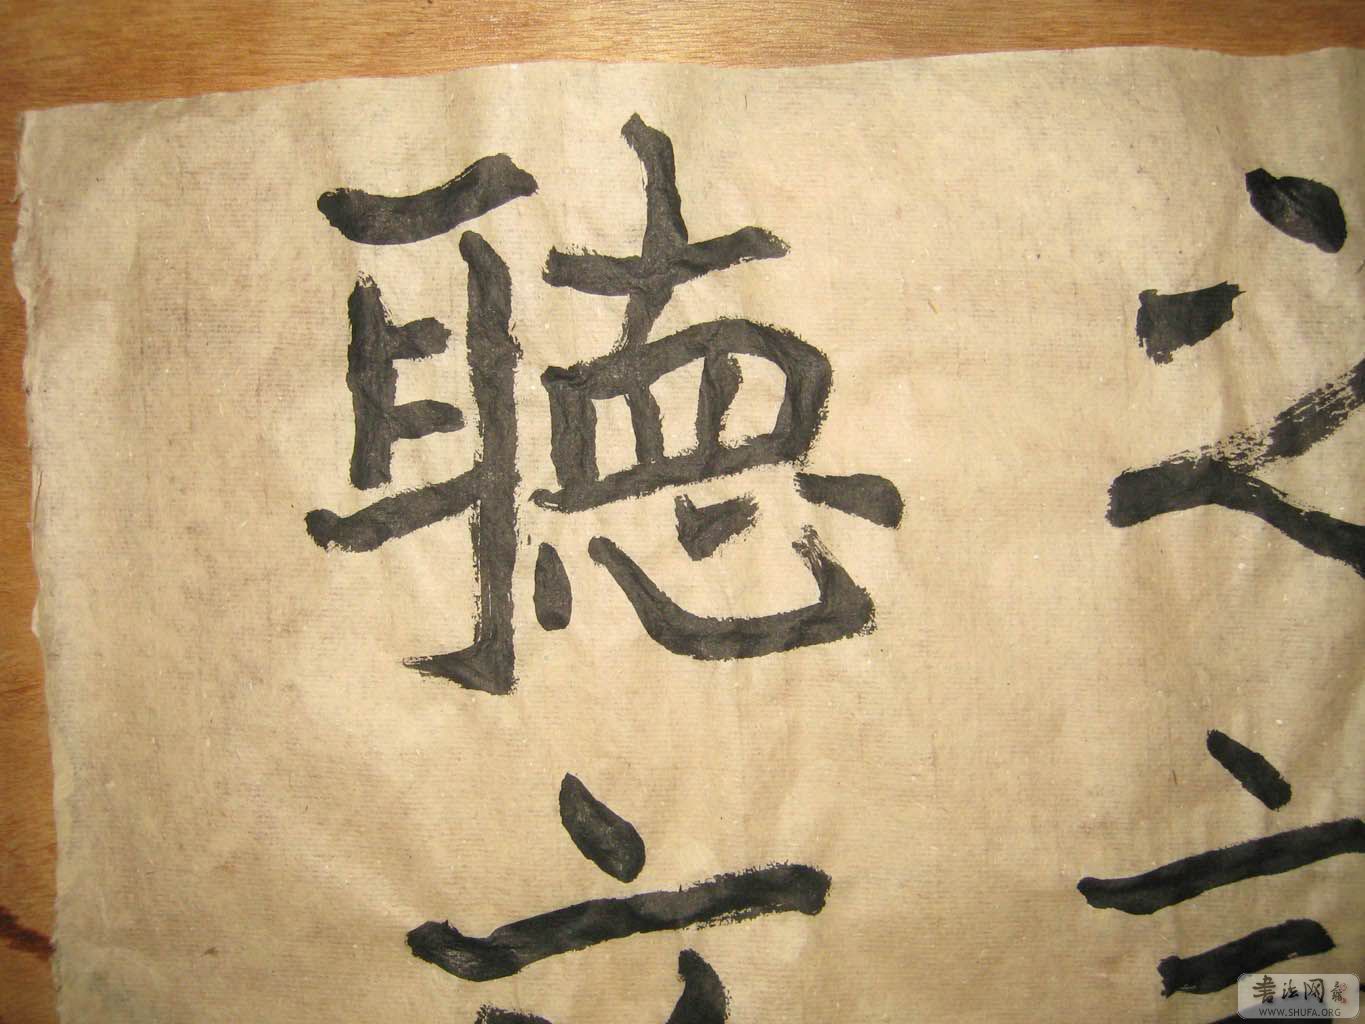 之言
聽
書法网
WWW.SHUFA.ORG